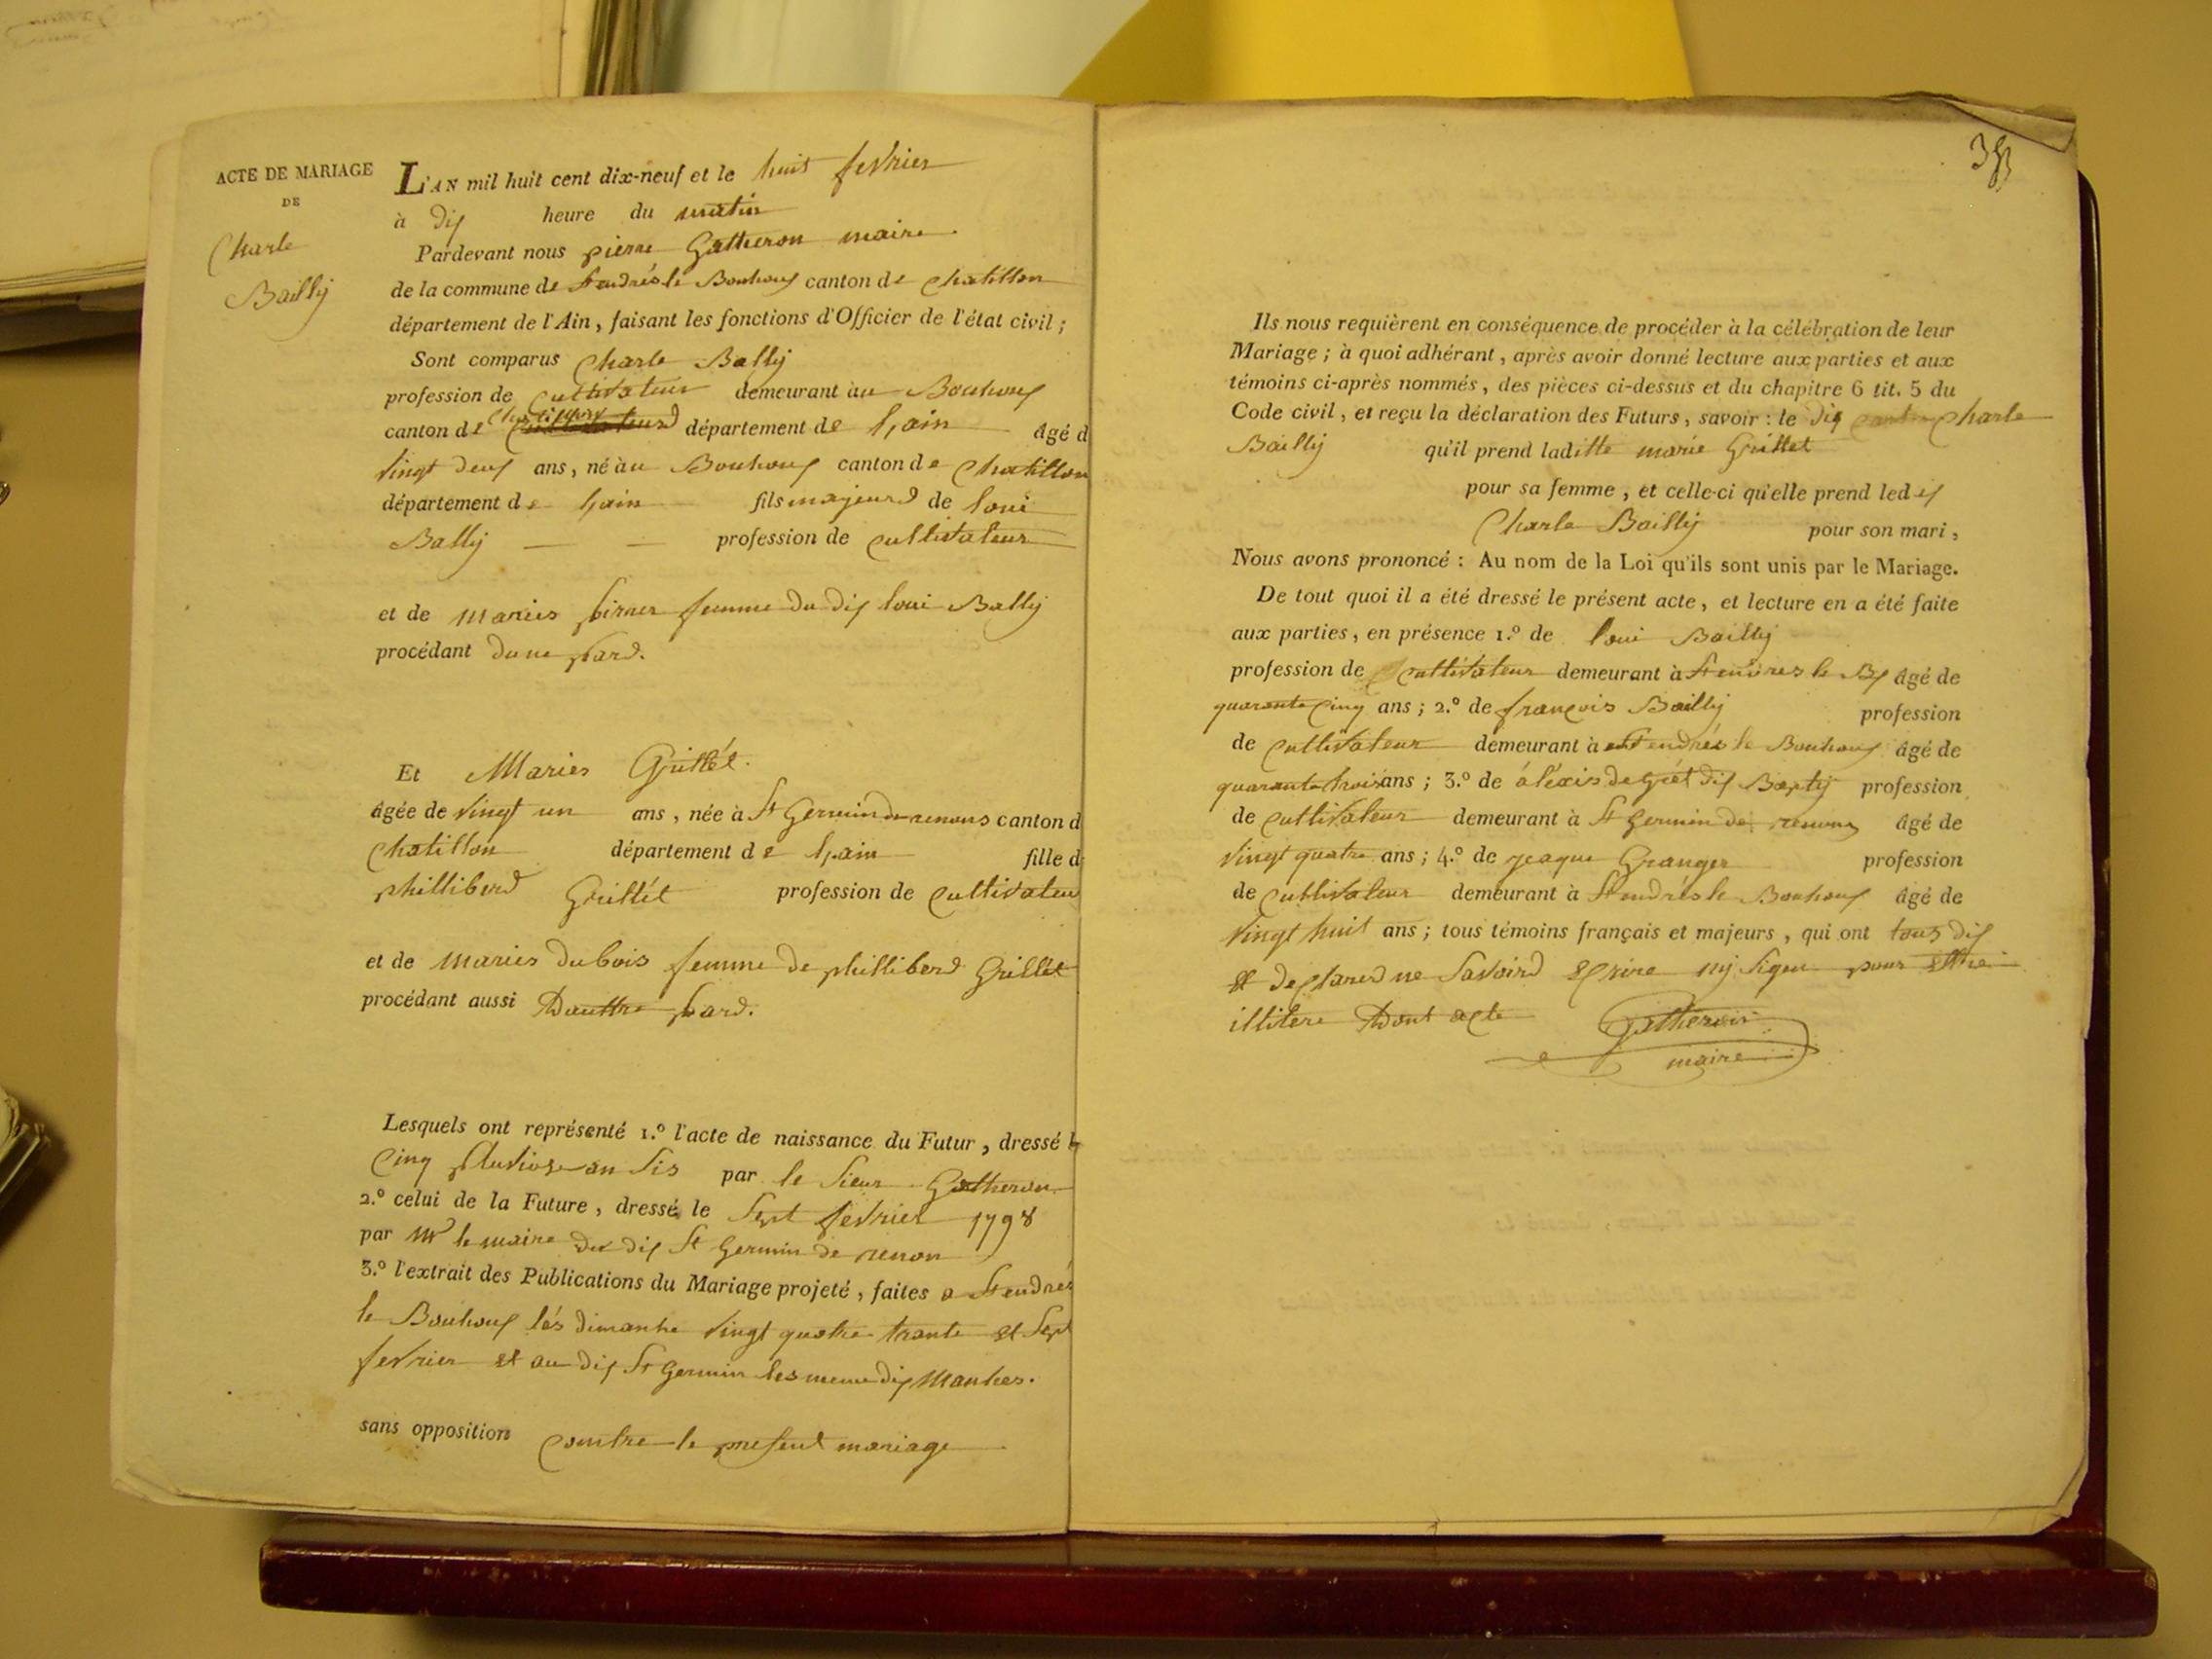 ACTE DE MARIAGE
DE
Charle
Bailly
L'AN mil huit cent dix-neuf et le huit fevrier
à dix heure du matin
Pardevant nous pierre Gatheron maire
de la commune de St endrés le Bouhoux canton de Chatillon
département de l'Ain, faisant les fonctions d'Officier de l'état civil;
Sont comparus Charle Bally
profession de Cultivateur demeurant au Bouhoux
canton de Chatillon département de lain âgé d
vingt deux ans, né au Bouhoux canton de Chatillon
département de lain fils majeurd de loui
Bally profession de Cultivateur
et de maries femme du dix loui Bally
procédant dune pard.
Et Maries Grillét.
âgée de vingt un ans, née à St Germin de renons canton d
Chatillon département de lain fille d
philliberd Grillét profession de Cultivateu
et de maries dubois femme de philliberd Grillét
procédant aussi Dauttre pard.
Lesquels ont représenté 1.º l'acte de naissance du Futur, dressé le
Cinq pluviose an sis par le sieur Gatheron
2.º celui de la Future, dressé le sept fevrier 1798
par mr le maire du dix St Germin de renon
3.º l'extrait des Publications du Mariage projeté, faites a St endrés
le Bouhoux lés dimanhe vingt quatre trante et sept
fevrier et au dix St Germin les meme dix manhes.
sans opposition Contre le present mariage
Ils nous requièrent en conséquence de procéder à la célébration de leur
Mariage; à quoi adhérant, après avoir donné lecture aux parties et aux
témoins ci-après nommés, des pièces ci-dessus et du chapitre 6 tit. 5 du
Code civil, et reçu la déclaration des Futurs, savoir: le dix Charle
Bailly qu'il prend laditte marie Grillet
pour sa femme, et celle-ci qu'elle prend ledix
Charle Bailly pour son mari,
Nous avons prononcé: Au nom de la Loi qu'ils sont unis par le Mariage.
De tout quoi il a été dressé le présent acte, et lecture en a été faite
aux parties, en présence 1.º de loui Bailly
profession de Cultivateur demeurant à St endres le Bx âgé de
quarante Cinq ans; 2.º de françois Bailly profession
de Cultivateur demeurant à St endrés le Bouhoux âgé de
quarante trois ans; 3.º de áléxis degrét dix Bapty profession
de Cultivateur demeurant à St Germin de renons âgé de
vingt quatre ans; 4.º de jeaque Granger profession
de Cultivateur demeurant à St endrés le Bouhoux âgé de
vingt huit ans; tous témoins français et majeurs, qui ont tous dix
et declared ne savoird ecrire ny signe pour ettre
illitere Dont acte Gatheron
maire